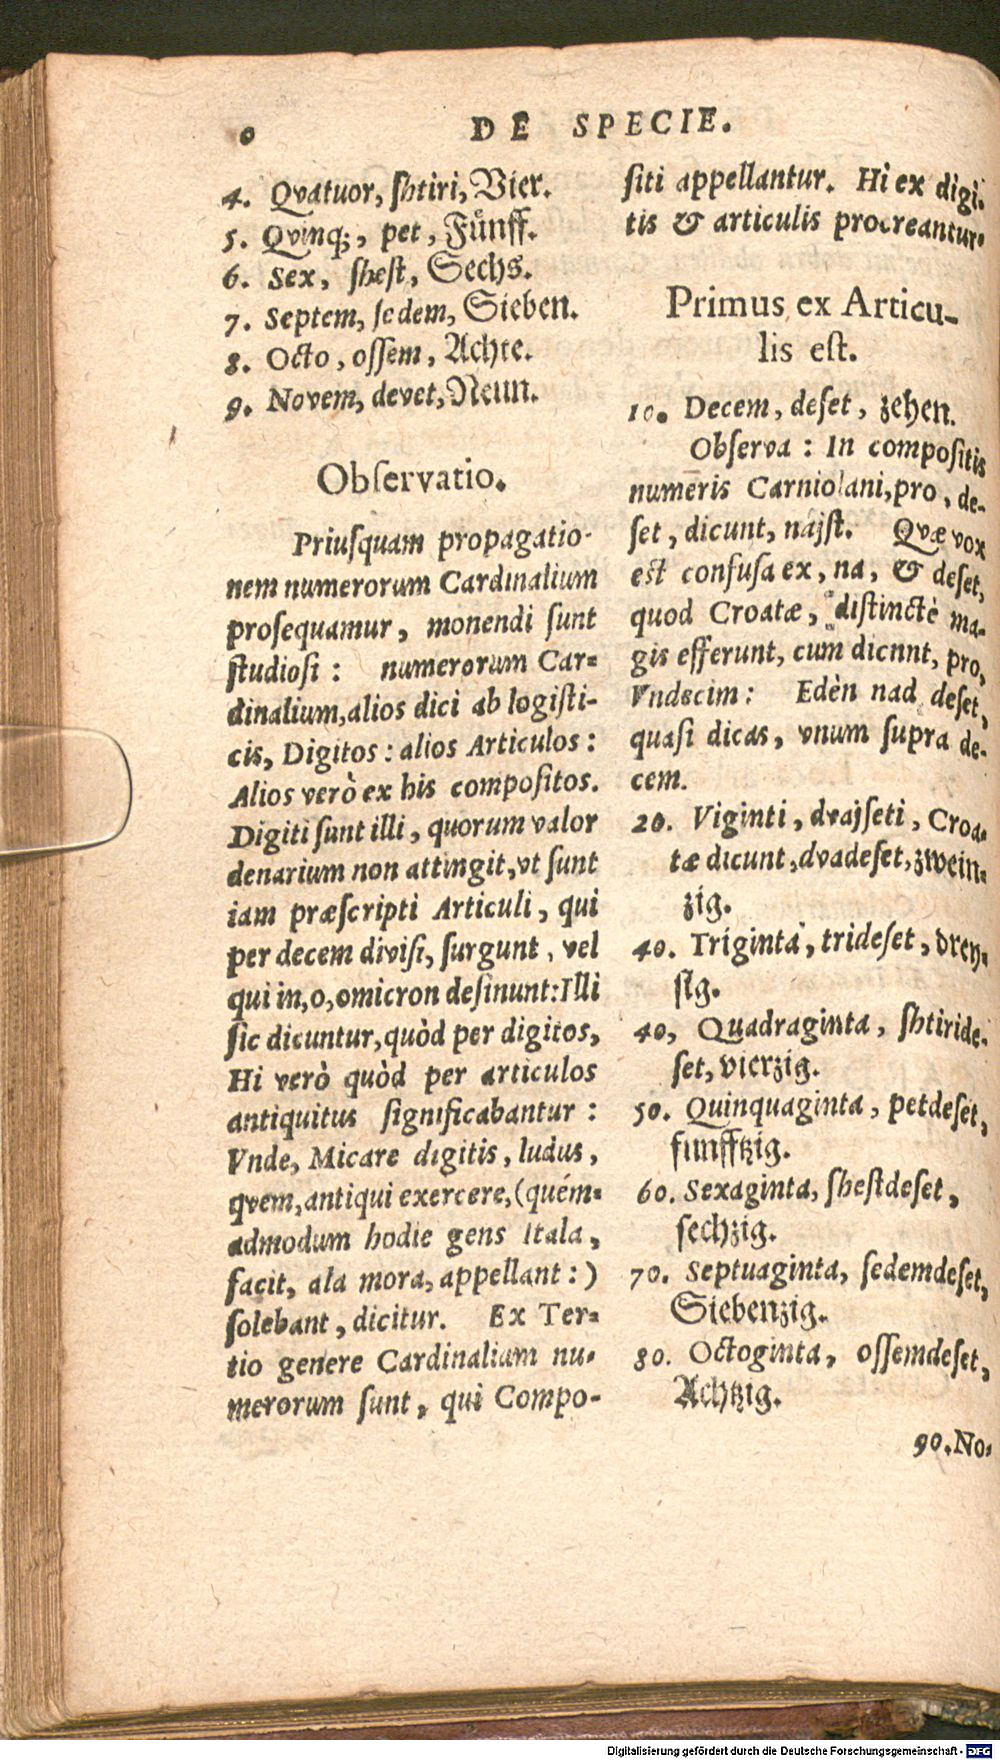 0 DE SPECIE.
4. Qvatuor, ſhtiri, Vier.
5. Qvinq;, pet, Fuͤnff.
6. Sex, ſheſt, Sechs.
7. Septem, ſedem, Sieben.
8. Octo, oſſem, Achte.
9. Novem, devet, Neun.
Obſervatio.
Priuſquam propagatio-
nem numerorum Cardinalium
proſequamur, monendi ſunt
ſtudioſi: numerorum Car-
dinalium, alios dici ab logiſti-
cis, Digitos: alios Articulos:
Alios verò ex his compoſitos.
Digiti ſunt illi, quorum valor
denarium non attingit, vt ſunt
iam præſcripti Articuli, qui
per decem diviſi, ſurgunt, vel
qui in, o, omicron deſinunt: Illi
ſic dicuntur, quòd per digitos,
Hi verò quòd per articulos
antiquitus ſignificabantur:
Vnde, Micare digitis, ludus,
qvem, antiqui exercere, (quém-
admodum hodie gens Itala,
facit, ala mora, appellant:)
ſolebant, dicitur. Ex Ter-
tio genere Cardinalium nu-
merorum ſunt, qui Compo-
ſiti appellantur. Hi ex digi-
tis & articulis procreantur.
Primus ex Articu-
lis eſt.
10. Decem, deſet, zehen.
Obſerva: In compoſitis
numeris Carniolani, pro, de-
ſet, dicunt, najſt. Qvæ vox
eſt confuſa ex, na, & deſet,
quod Croatæ, diſtinctè ma-
gis efferunt, cum dicnnt, pro,
Vndecim: Edèn nad deſet,
quaſi dicas, vnum ſupra de-
cem.
20. Viginti, dvajſeti, Croa-
tæ dicunt, dvadeſet, zwein-
zig.
40. Triginta, trideſet, drey-
ſig.
40, Quadraginta, ſhtiride-
ſet, vierzig.
50. Quinquaginta, petdeſet,
funfftzig.
60. Sexaginta, ſheſtdeſet,
ſechzig.
70. Septuaginta, ſedemdeſet,
Siebenzig.
80. Octoginta, oſſemdeſet,
Achtzig.
90. No-
Digitalisierung gefördert durch die Deutsche Forschungsgemeinschaft - DFG